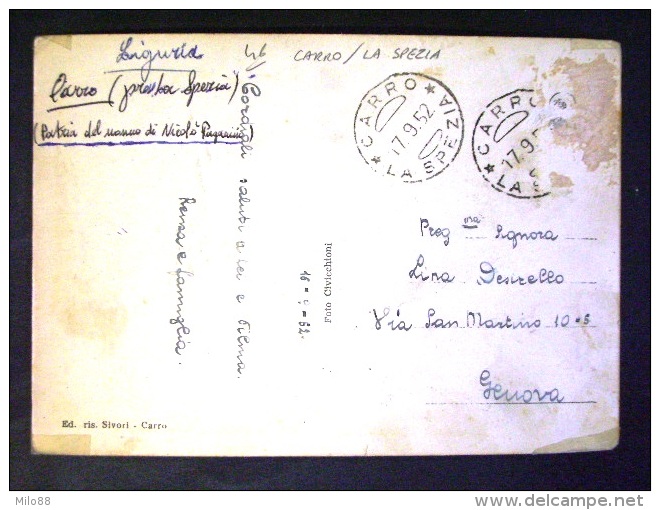 Liguria
46
CARRO / LA SPEZIA
Carro (presso Spezia)
(Patria del nonno di Nicolò Paganini)
Cordiali saluti a lei e Vilma.
Renza e famiglia.
16-9-52.
Foto Civicchioni
CARRO
17.9.52
LA SPEZIA
CARRO
17.9.5
LA S
Preg ma Signora
Lina
Via San Martino 10-5
Genova
Ed. ris. Sivori - Carro
Milo88
delcampe.net